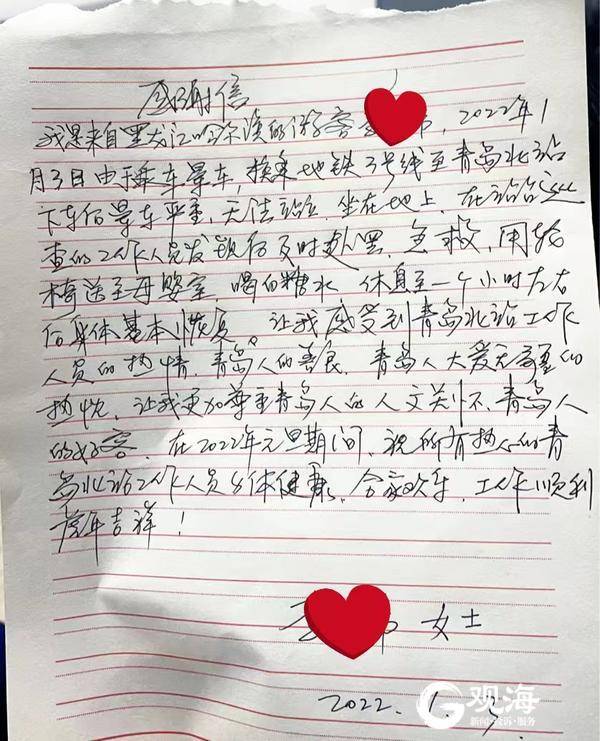 感谢信
我是来自黑龙江哈尔滨的游客，2022年1
月3日由于乘车晕车，换乘地铁3号线至青岛北站
下车后晕车严重，无法站立，坐在地上，在站台巡
查的工作人员发现后及时处置、急救，用轮
椅送至母婴室，喝白糖水 休息至一个小时左右
后身体基本恢复。让我感受到青岛北站工作
人员的热情，青岛人的善良，青岛人大爱无疆的
热忱，让我更加尊重青岛人的人文关怀、青岛人
的好客。在2022年元旦期间，祝所有热心的青
岛北站工作人员身体健康、合家欢乐，工作顺利
虎年吉祥！
女士
2022.1.3
观海
新闻·投诉·服务